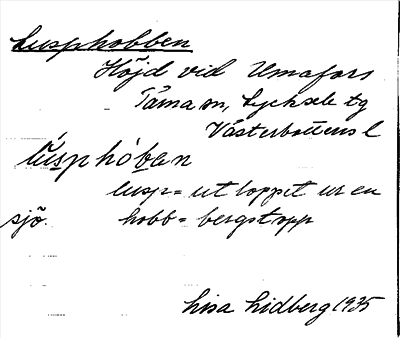 Lusphobben
Höjd vid Umafors
Tärna sn, Lycksele tg
Västerbottens l
lúsphòban
lusp = utloppet ur en
sjö. hobb = bergstopp
Lisa Lidberg 1935